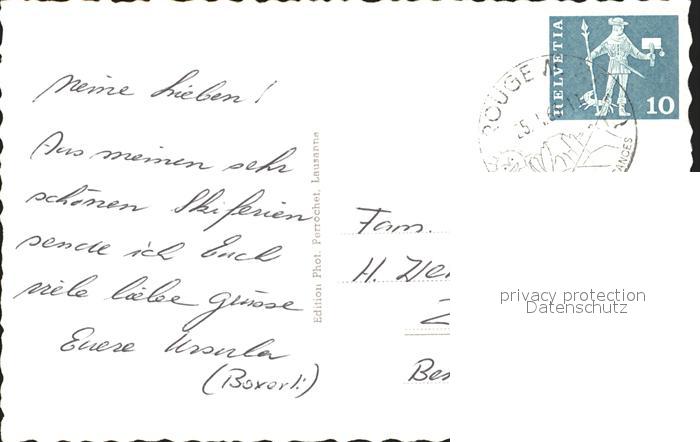 Meine Lieben!
Aus meinen sehr
schönen Skiferien
sende ich Euch
viele liebe Grüsse
Euere Ursula
Edition Phot. Perrochet, Lausanne
HELVETIA
10
ROUGE
Fam.
H.
privacy protection
Datenschutz